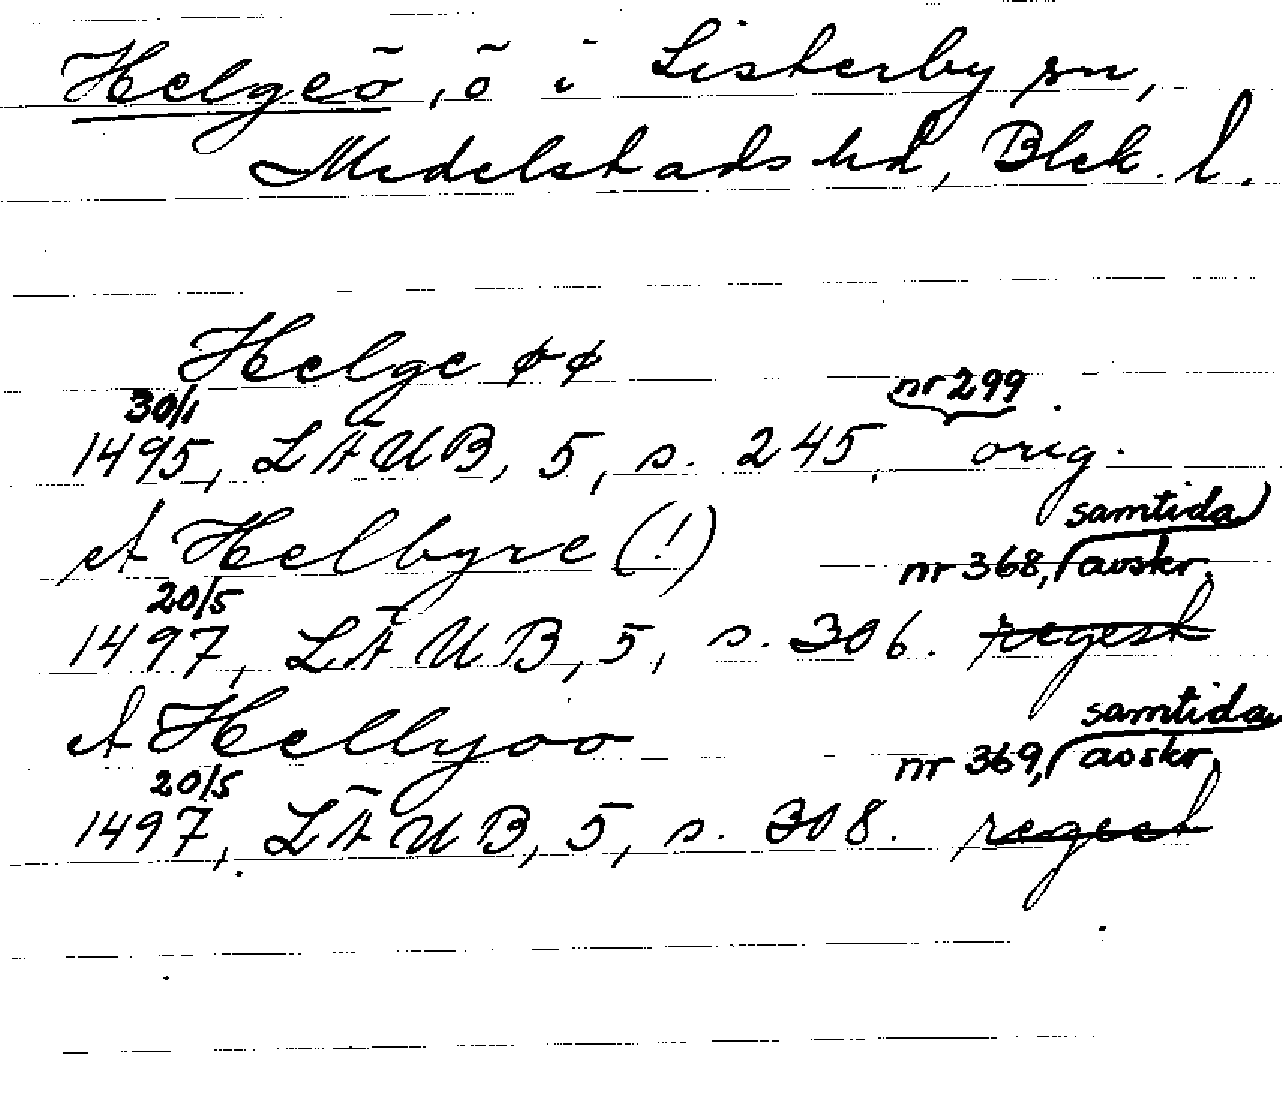 Helgeö, ö i Listerby sn,
Medelstads hd, Blek. l.
Helge øø
30/1 nr 299
1495, LÄUB, 5, s. 245. orig.
A Helbyre (!) samtida
nr 368, avskr.
20/5
1497, LÄUB, 5, s. 306. regest
A Hellyoo samtida
nr 369, avskr.
20/5
1497, LÄUB, 5, s. 308. regest